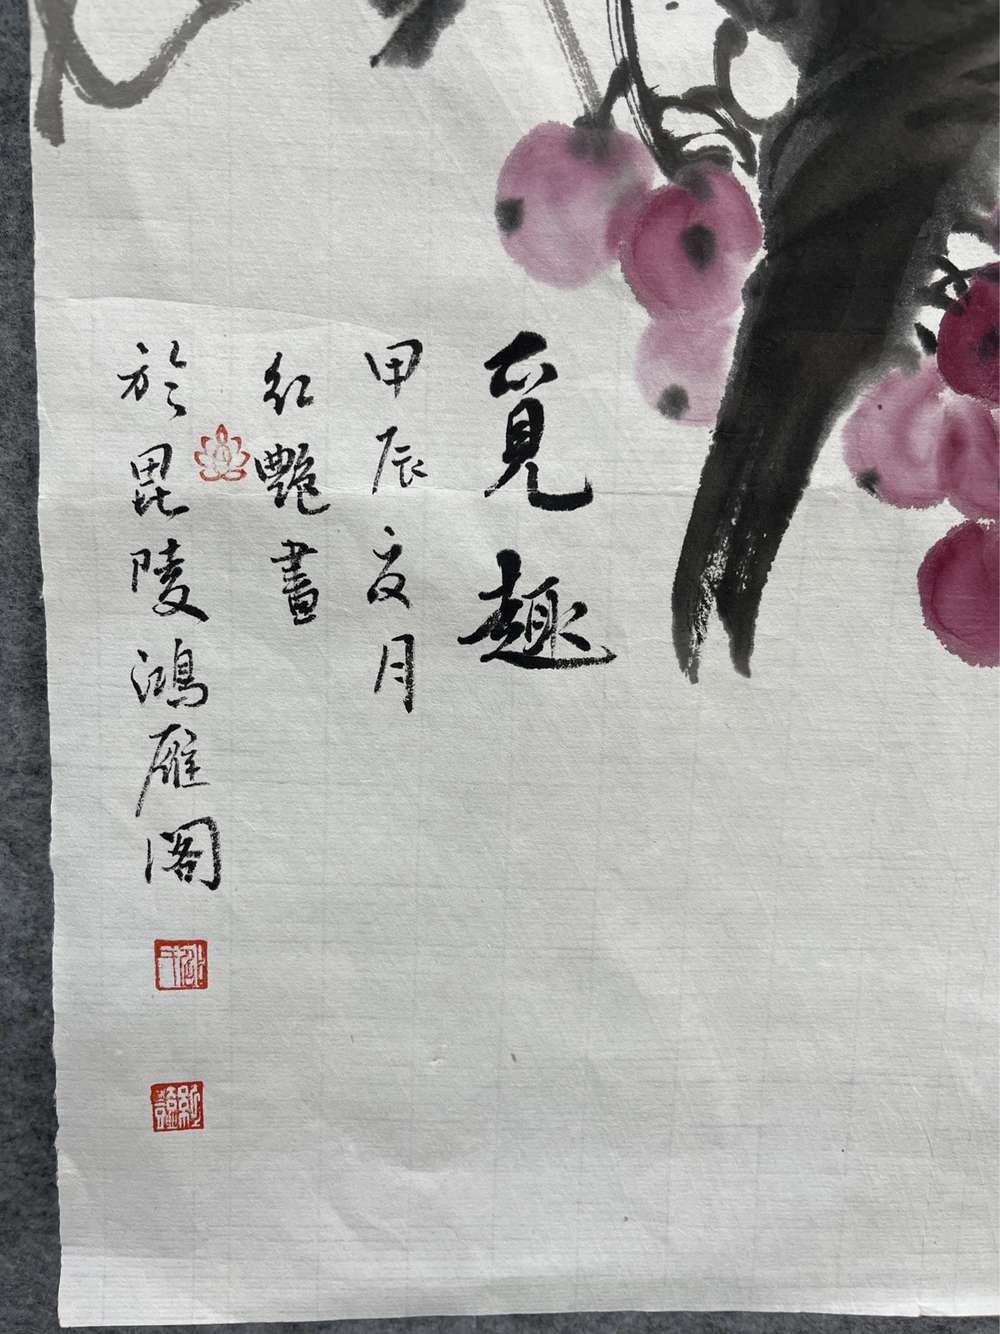 覓趣
甲辰夏月
红艷畫
於毘陵鴻雁阁